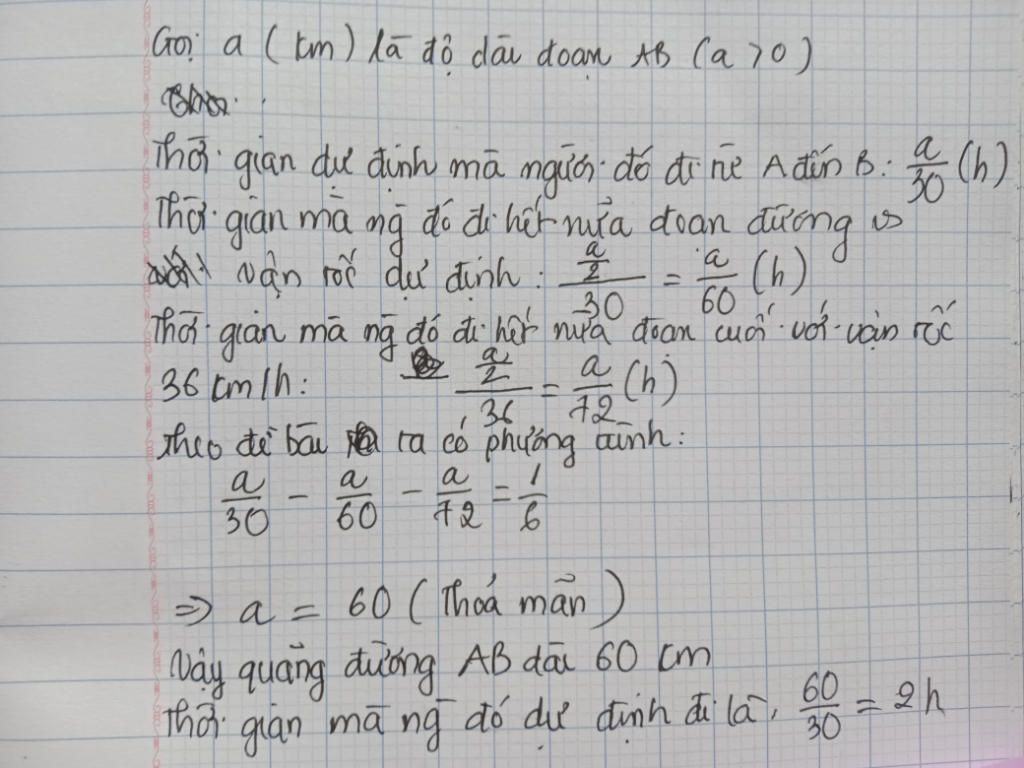 Gọi a (km) là độ dài đoạn AB (a > 0)
Thời gian dự định mà người đó đi từ A đến B: a/30 (h)
Thời gian mà ng đó đi hết nửa đoạn đường vs
vận tốc dự định: (a/2)/30 = a/60 (h)
Thời gian mà ng đó đi hết nửa đoạn cuối với vận tốc
36 km/h: (a/2)/36 = a/72 (h)
Theo đề bài ra có phương trình:
a/30 - a/60 - a/72 = 1/6
=> a = 60 (Thoả mãn)
Vậy quãng đường AB dài 60 cm
Thời gian mà ng đó dự định đi là, 60/30 = 2h